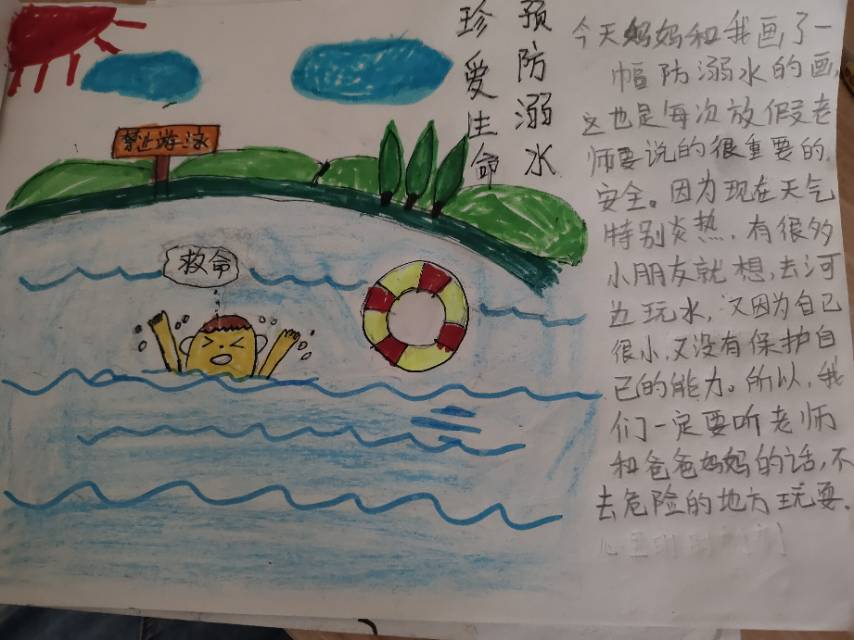 预防溺水
珍爱生命
禁止游泳
救命
今天妈妈和我画了一
幅防溺水的画,
这也是每次放假老
师要说的很重要的,
安全。因为现在天气
特别炎热,有很多
小朋友就想,去河
边玩水,又因为自己
很小,又没有保护自
己的能力。所以,我
们一定要听老师
和爸爸妈妈的话,不
去危险的地方玩耍.